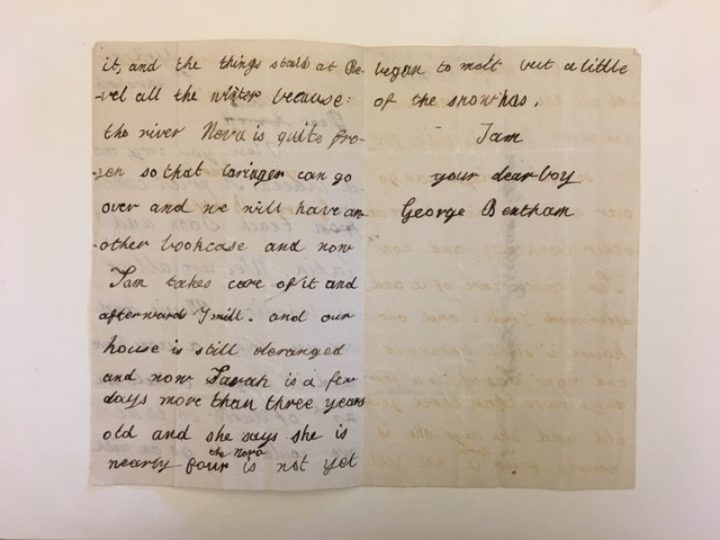 it, and the things staid at Re-
-vel all the winter because
the river Neva is quite fro-
-zen so that carriages can go
over and we will have an-
-other bookcase and now
Jam takes care of it and
afterward I will. and our
house is still deranged
and now Sarah is a few
days more than three years
old and she says she is
nearly four the Neva is not yet
began to melt but a little
of the snow has.
I am
your dear boy
George Bentham